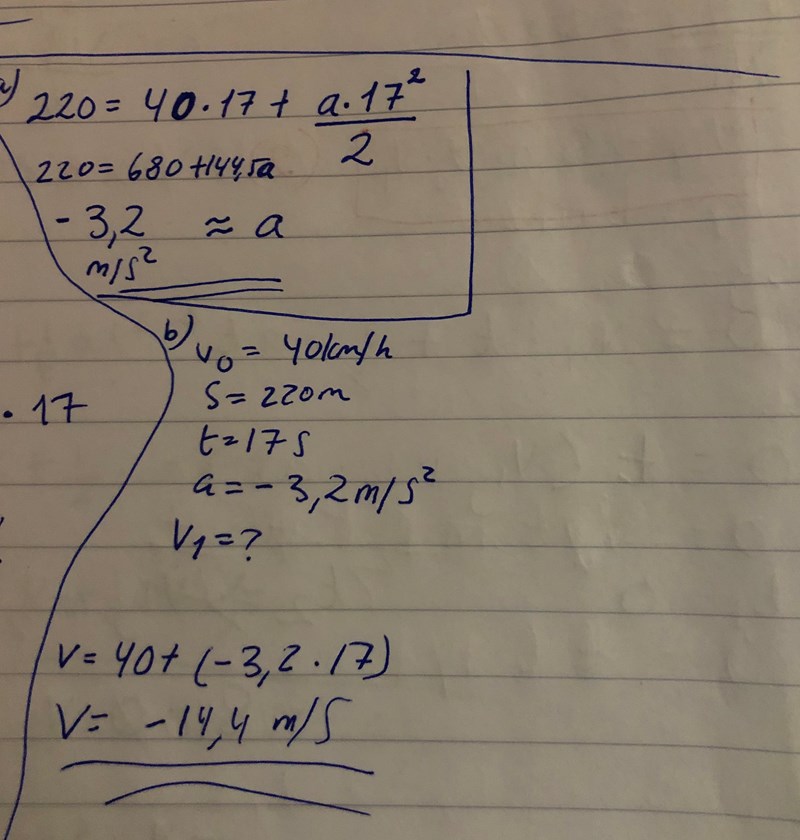 a)
220 = 40 · 17 + a · 17² / 2
220 = 680 + 144,5a
- 3,2 ≈ a
m/s²
b)
v₀ = 40km/h
s = 220m
· 17
t = 17s
a = - 3,2 m/s²
V₁ = ?
V = 40 + (-3,2 · 17)
V = -14,4 m/s